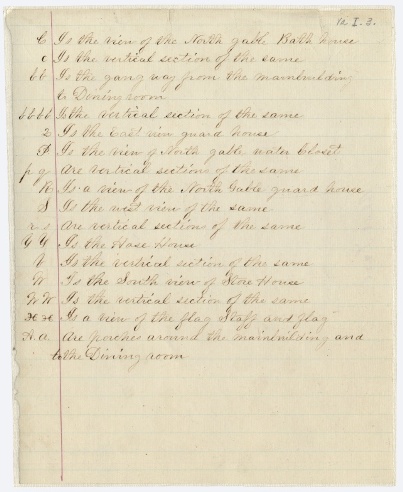 12 I. 3.
C Is the view of the North gable Bath house
c Is the vertical section of the same
bb Is the gang way from the mainbuilding
to Diningroom
bbbb Is the vertical section of the same
2 Is the East view guard house
P Is the view of North gable water Closet
p q Are vertical sections of the same
R Is a view of the North Gable guard house
S Is the west view of the same
r s Are vertical sections of the same
Is the Hose House
Is the vertical section of the same
W Is the South view of Store House
WW Is the vertical section of the same
Is a view of the flag Staff and flag
Are porches around the mainbuilding and
the Diningroom